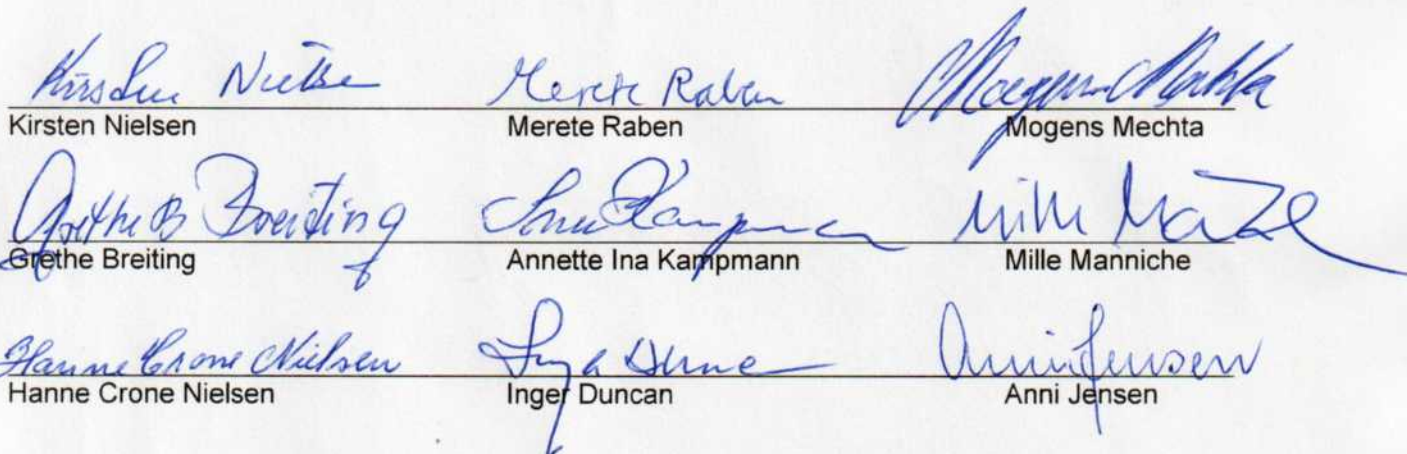 Kirsten Nielsen Merete Raben Mogens Mechta
Kirsten Nielsen Merete Raben Mogens Mechta
Grethe B Breiting Kampmann Mille
Grethe Breiting Annette Ina Kampmann Mille Manniche
Hanne Crone Nielsen Inger Anni Jensen
Hanne Crone Nielsen Inger Duncan Anni Jensen